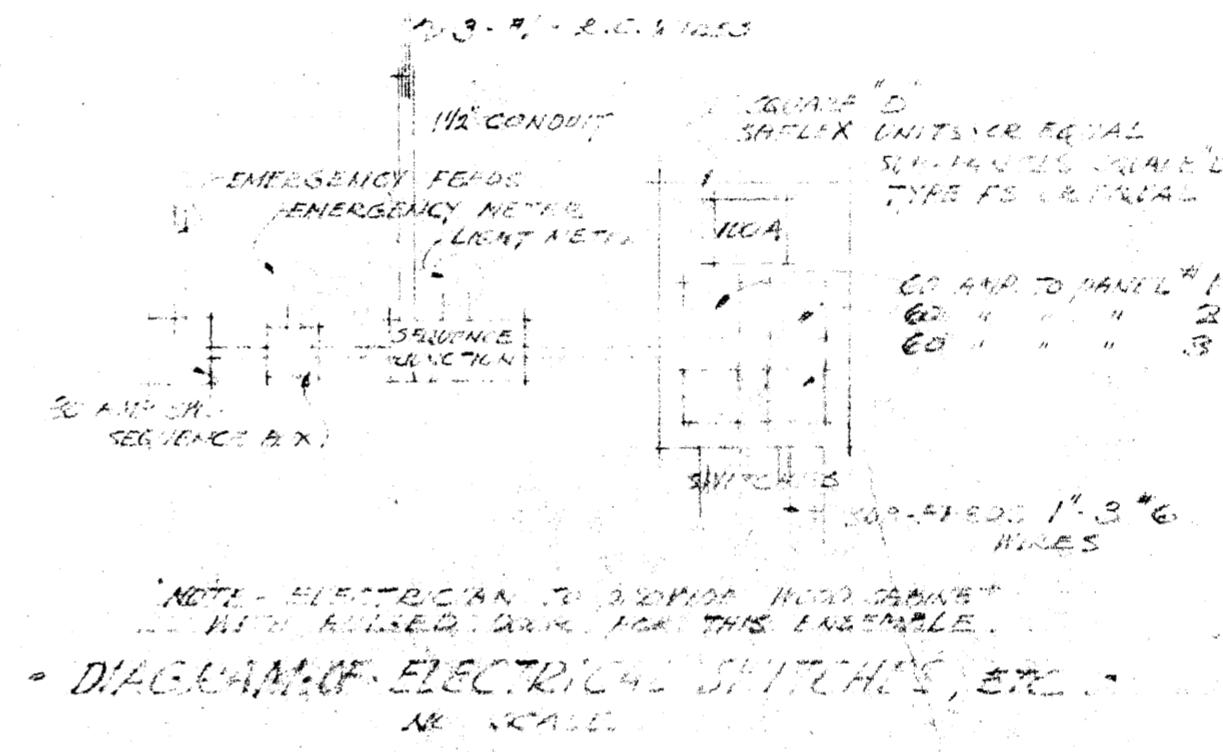 3-#1-R.C. WIRES
1½" CONDUIT
SQUARE "D"
SAFLEX UNITS OR EQUAL
SQUARE "D
TYPE FS OR EQUAL
EMERGENCY FEEDS
EMERGENCY METER
LIGHT METER
100A
60 AMP. TO PANEL #1
60 " " " 2
60 " " " 3
SEQUENCE
JUNCTION
AMP SW.
SEQUENCE BOX
SWITCHES
1"-3 #6
WIRES
NOTE - ELECTRICIAN TO PROVIDE WOOD CABINET
WITH DOOR FOR THIS ENSEMBLE.
DIAGRAM OF ELECTRICAL SWITCHES, ETC.
NO SCALE